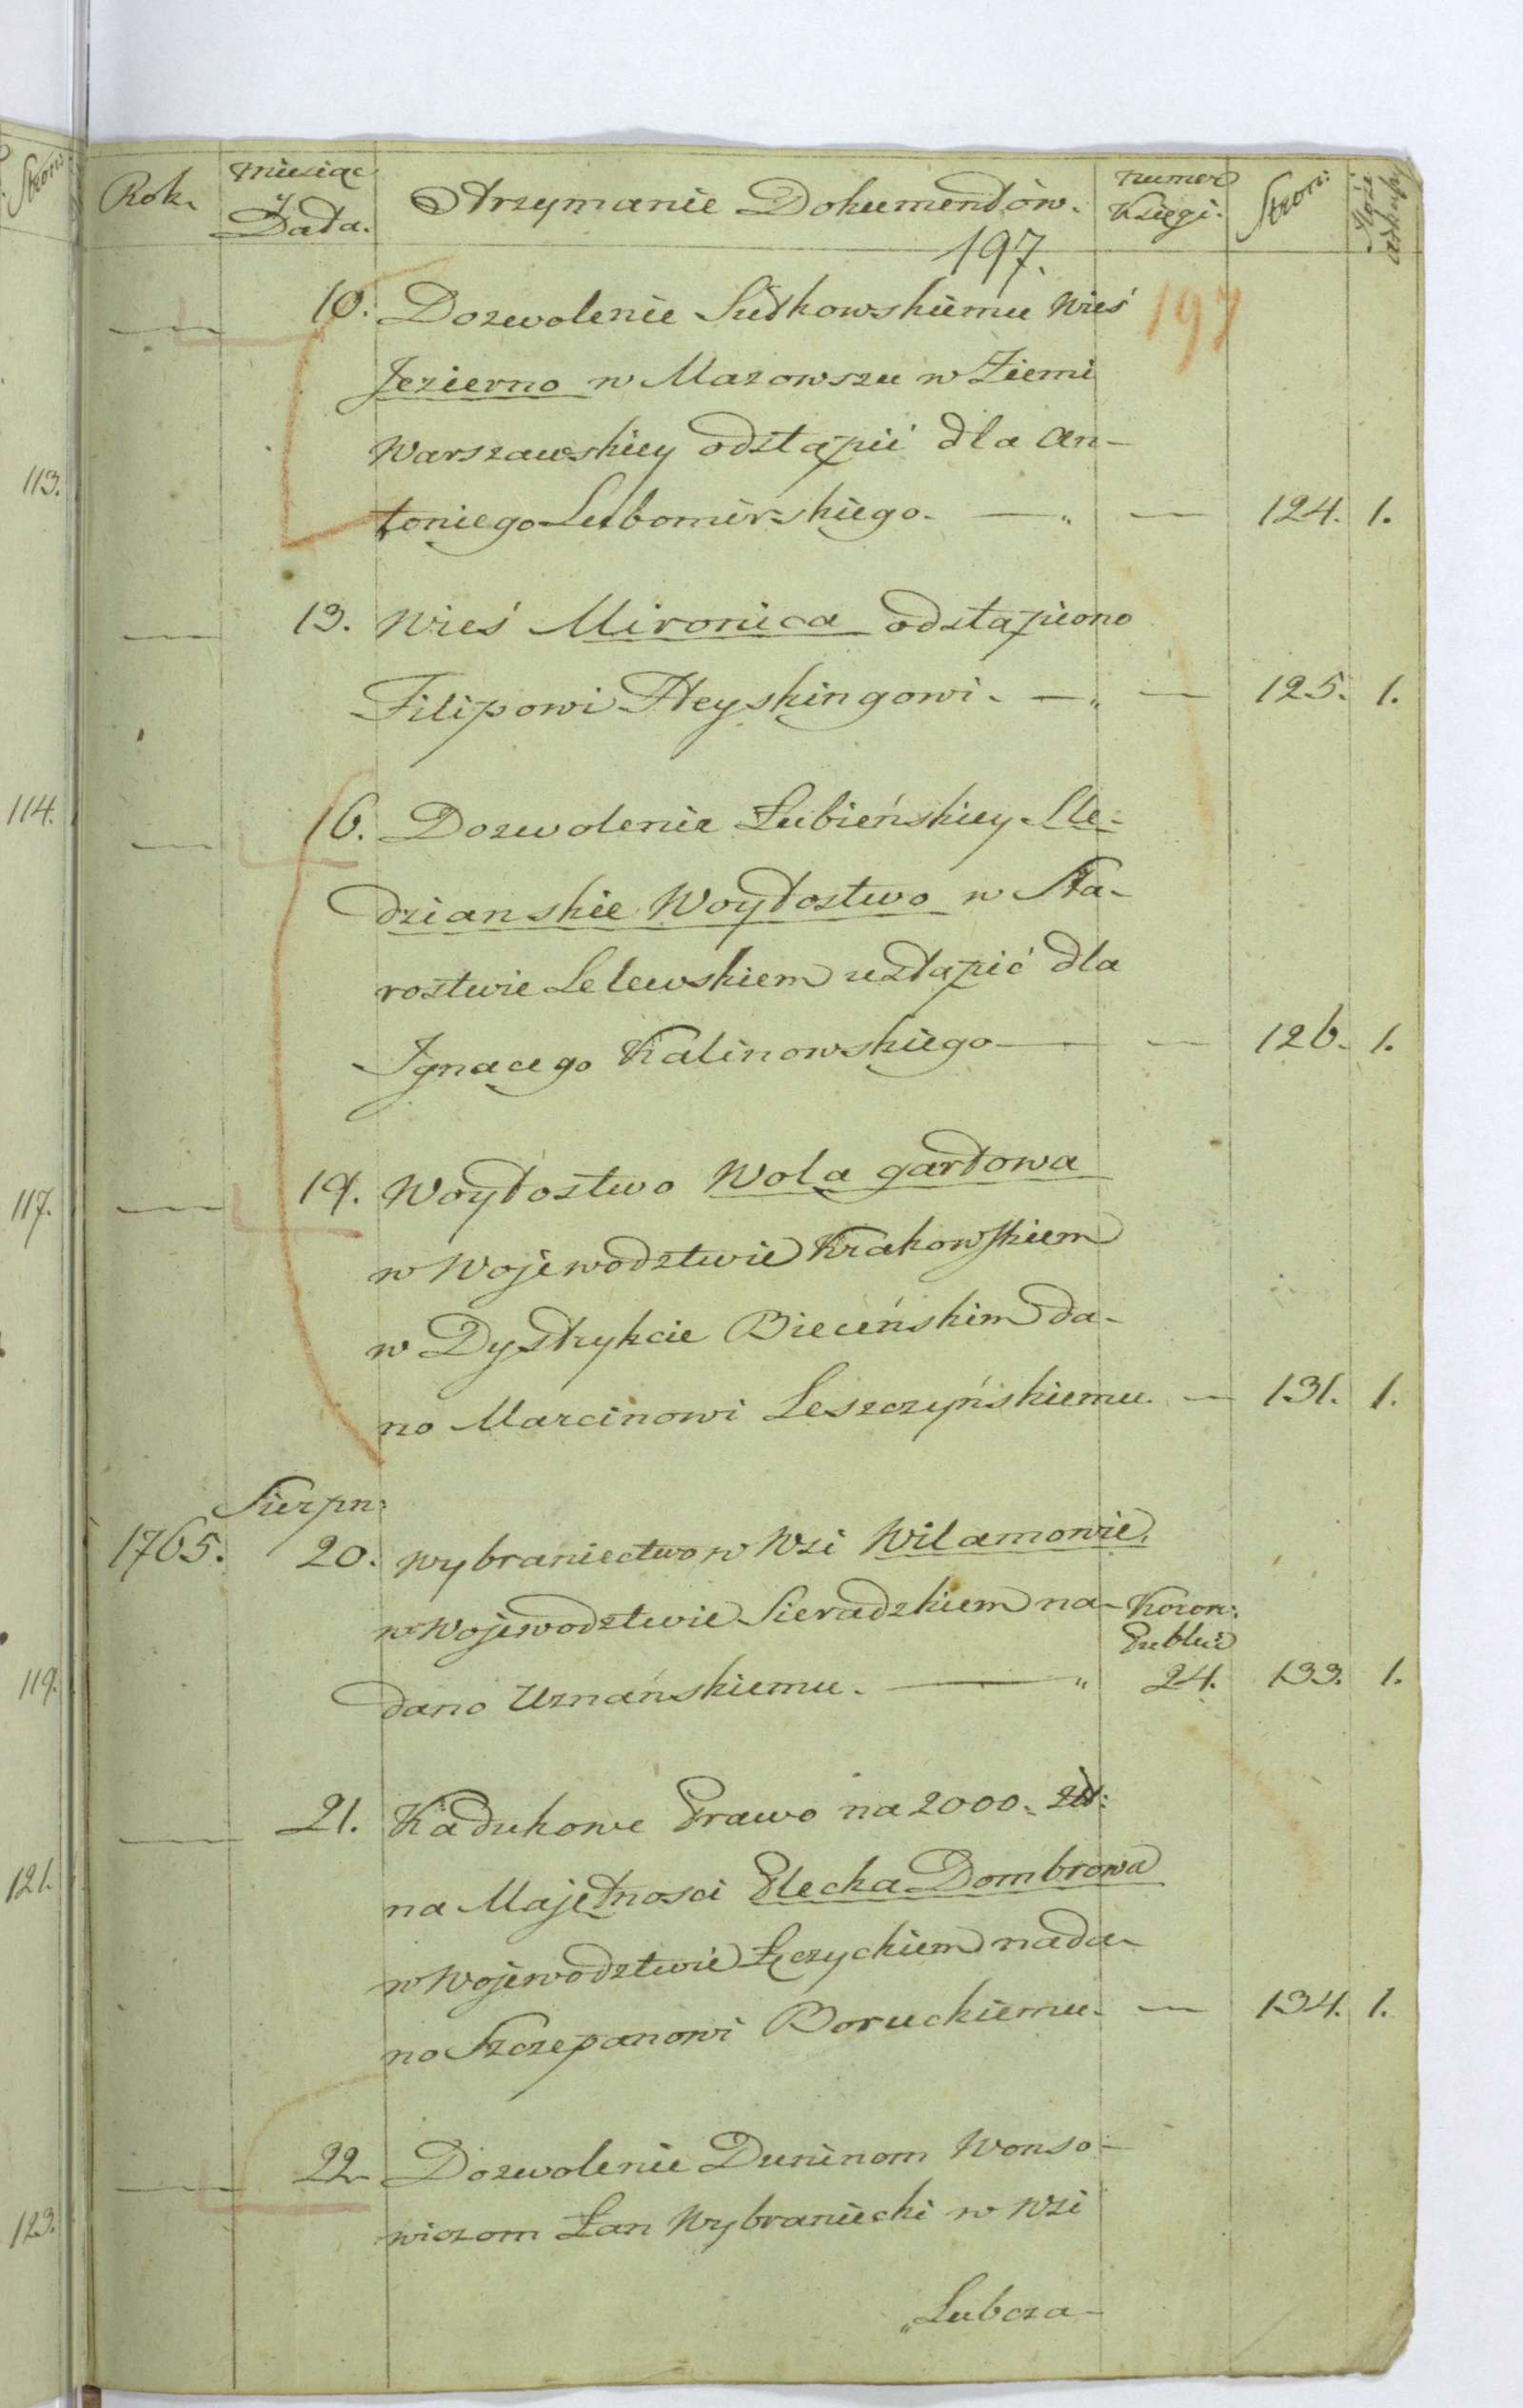 Stron:
Rok.
Miesiąc
y
Data.
Otrzymanie Dokumentów.
numer
Księgi.
Stron:
Ilość
arkuszy
197.
197
10. Dozwolenie Sułkowskiemu Wieś
Jezierno w Mazowszu w Ziemi
Warszawskiey odstąpić dla An-
toniego Lubomirskiego. — 124. 1.
13. Wieś Mironica odstąpiono
Filipowi Heyskingowi. — 125. 1.
16. Dozwolenie Łubieńskiey Sle-
dzianskie Woytostwo w Sta-
rostwie Lelewskiem ustąpić dla
Ignacego Kalinowskiego — 126. 1.
19. Woytostwo Wola gartowa
w Wojewodztwie Krakowskiem
w Dystrykcie Bieceńskim da-
no Marcinowi Leszczyńskiemu. — 131. 1.
Sierpn:
1765. 20. wybraniectwo w Wsi Wilamowie.
w Wojewodztwie Sieradzkiem na- Koron:
Public
dano Uznańskiemu. — 24. 133. 1.
21. Kadukowe Prawo na 2000. zł:
na Majętnosci Plecka Dombrowa
w Wojewodztwie Łęczyckiem nada-
no Szczepanowi Boruckiemu. — 134. 1.
22 Dozwolenie Duninom Wonso-
wiczom Łan Wybraniecki w Wsi
„Lubcza-
113.
114.
117.
119.
121.
123.